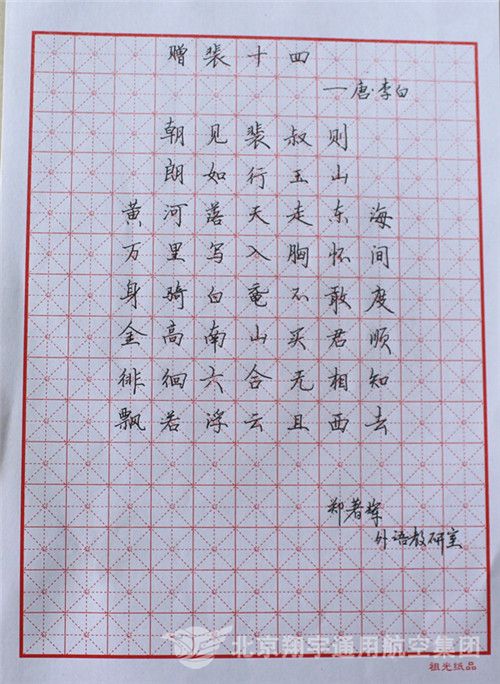 赠裴十四
一唐·李白
朝见裴叔则
朗如行玉山
黄河落天走东海
万里写入胸怀间
身骑白鼋不敢度
金高南山买君顺
徘徊六合无相知
飘若浮云且西去
郑著辉
外语教研室
北京翔宇通用航空集团
祖光纸品